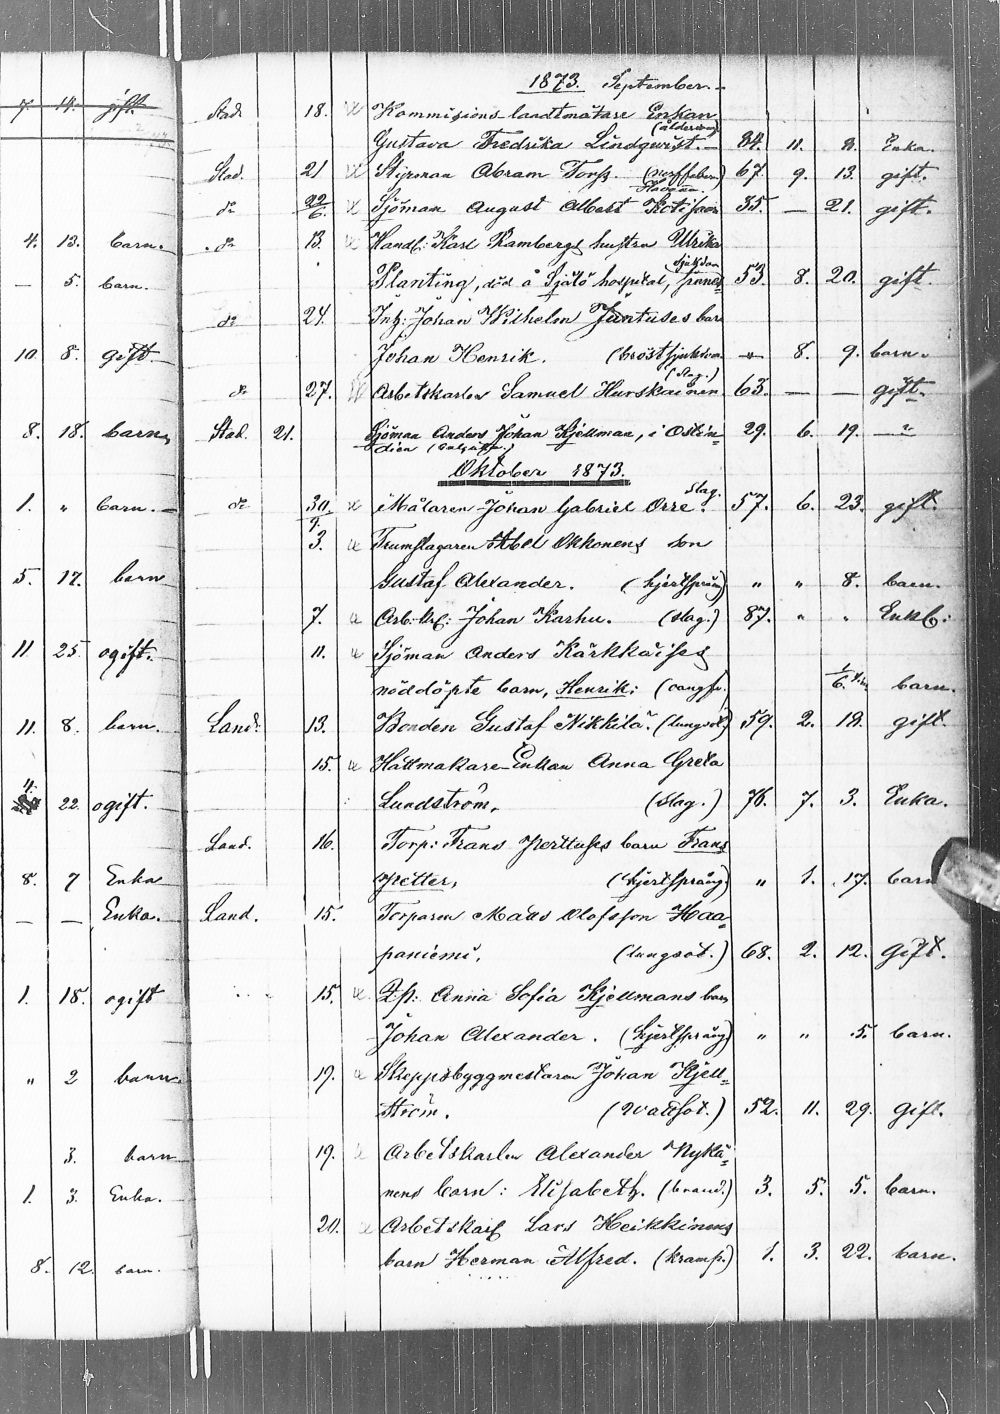 1873. September.
7. 14. gift. Stad. 18. Kommisions landtmätare Enkan
(ålderdom)
Gustava Fredrika Lindqwist. 84. 11. 8. Enka.
Stad. 21 Styrman Abram Forss. 67. 9. 13. gift.
do 22/6. Sjöman August Albert 35. — 21. gift.
4. 13. barn. do 13. Handl: Karl Rambergs hustru Ulrika
— 5. barn. Planting, död å Själö hospital, 53. 8. 20. gift.
do 24. Johan Wilhelm Juntuses barn
10. 8. gift Johan Henrik. (bröstsjukdom „ 8. 9. barn.
(slag.)
do 27. Arbetskarlen Samuel Hurskainen 63. — — gift.
8. 18. barn Stad. 21. Sjöman Anders Johan Kjellman, i Ostin- 29. 6. 19. „
dien
Oktober 1873.
1. „ barn. do 30/9. Målaren Johan Gabriel Orre. slag. 57. 6. 23. gift.
3. Trumslagaren Abel Okkonens son
5. 17. barn Gustaf Alexander. (hjertsprång) „ „ 8. barn.
7. Arb. k: Johan Karhu. (slag.) 87. „ „ Enkl:
11 25 ogift. 11. Sjöman Anders Kärkkäises
nöddöpte barn, Henrik: 1/6 barn.
11. 8. barn. Land. 13. Bonden Gustaf Nikkilä. (lungsot.) 59. 2. 19. gift.
15. Hattmakare Enkan Anna Greta
4. 22. ogift. Lundström, (slag.) 76. 7. 3. Enka.
Land. 16. Torp: Frans Perttuses barn Frans
8. 7 Enka Petter, (hjertsprång) „ 1. 17. barn
— — Enka. Land. 15. Torparen Matts Olofsson Haa-
paniemi, (lungsot.) 68. 2. 12. Gift.
1. 18. ogift 15. Anna Sofia Kjellmans barn
Johan Alexander. (hjertsprång) „ „ 5. barn.
„ 2 barn 19. Skeppsbyggmestaren Johan Kjell-
ström. (wattsot.) 52. 11. 29. Gift.
3. barn 19. Arbetskarlen Alexander Nykä-
1. 3. Enka. nens barn: Elisabeth. (brand.) 3. 5. 5. barn.
20. Arbetskarl Lars Heikkinens
8. 12. barn. barn Herman Alfred. (kramp.) 1. 3. 22. barn.